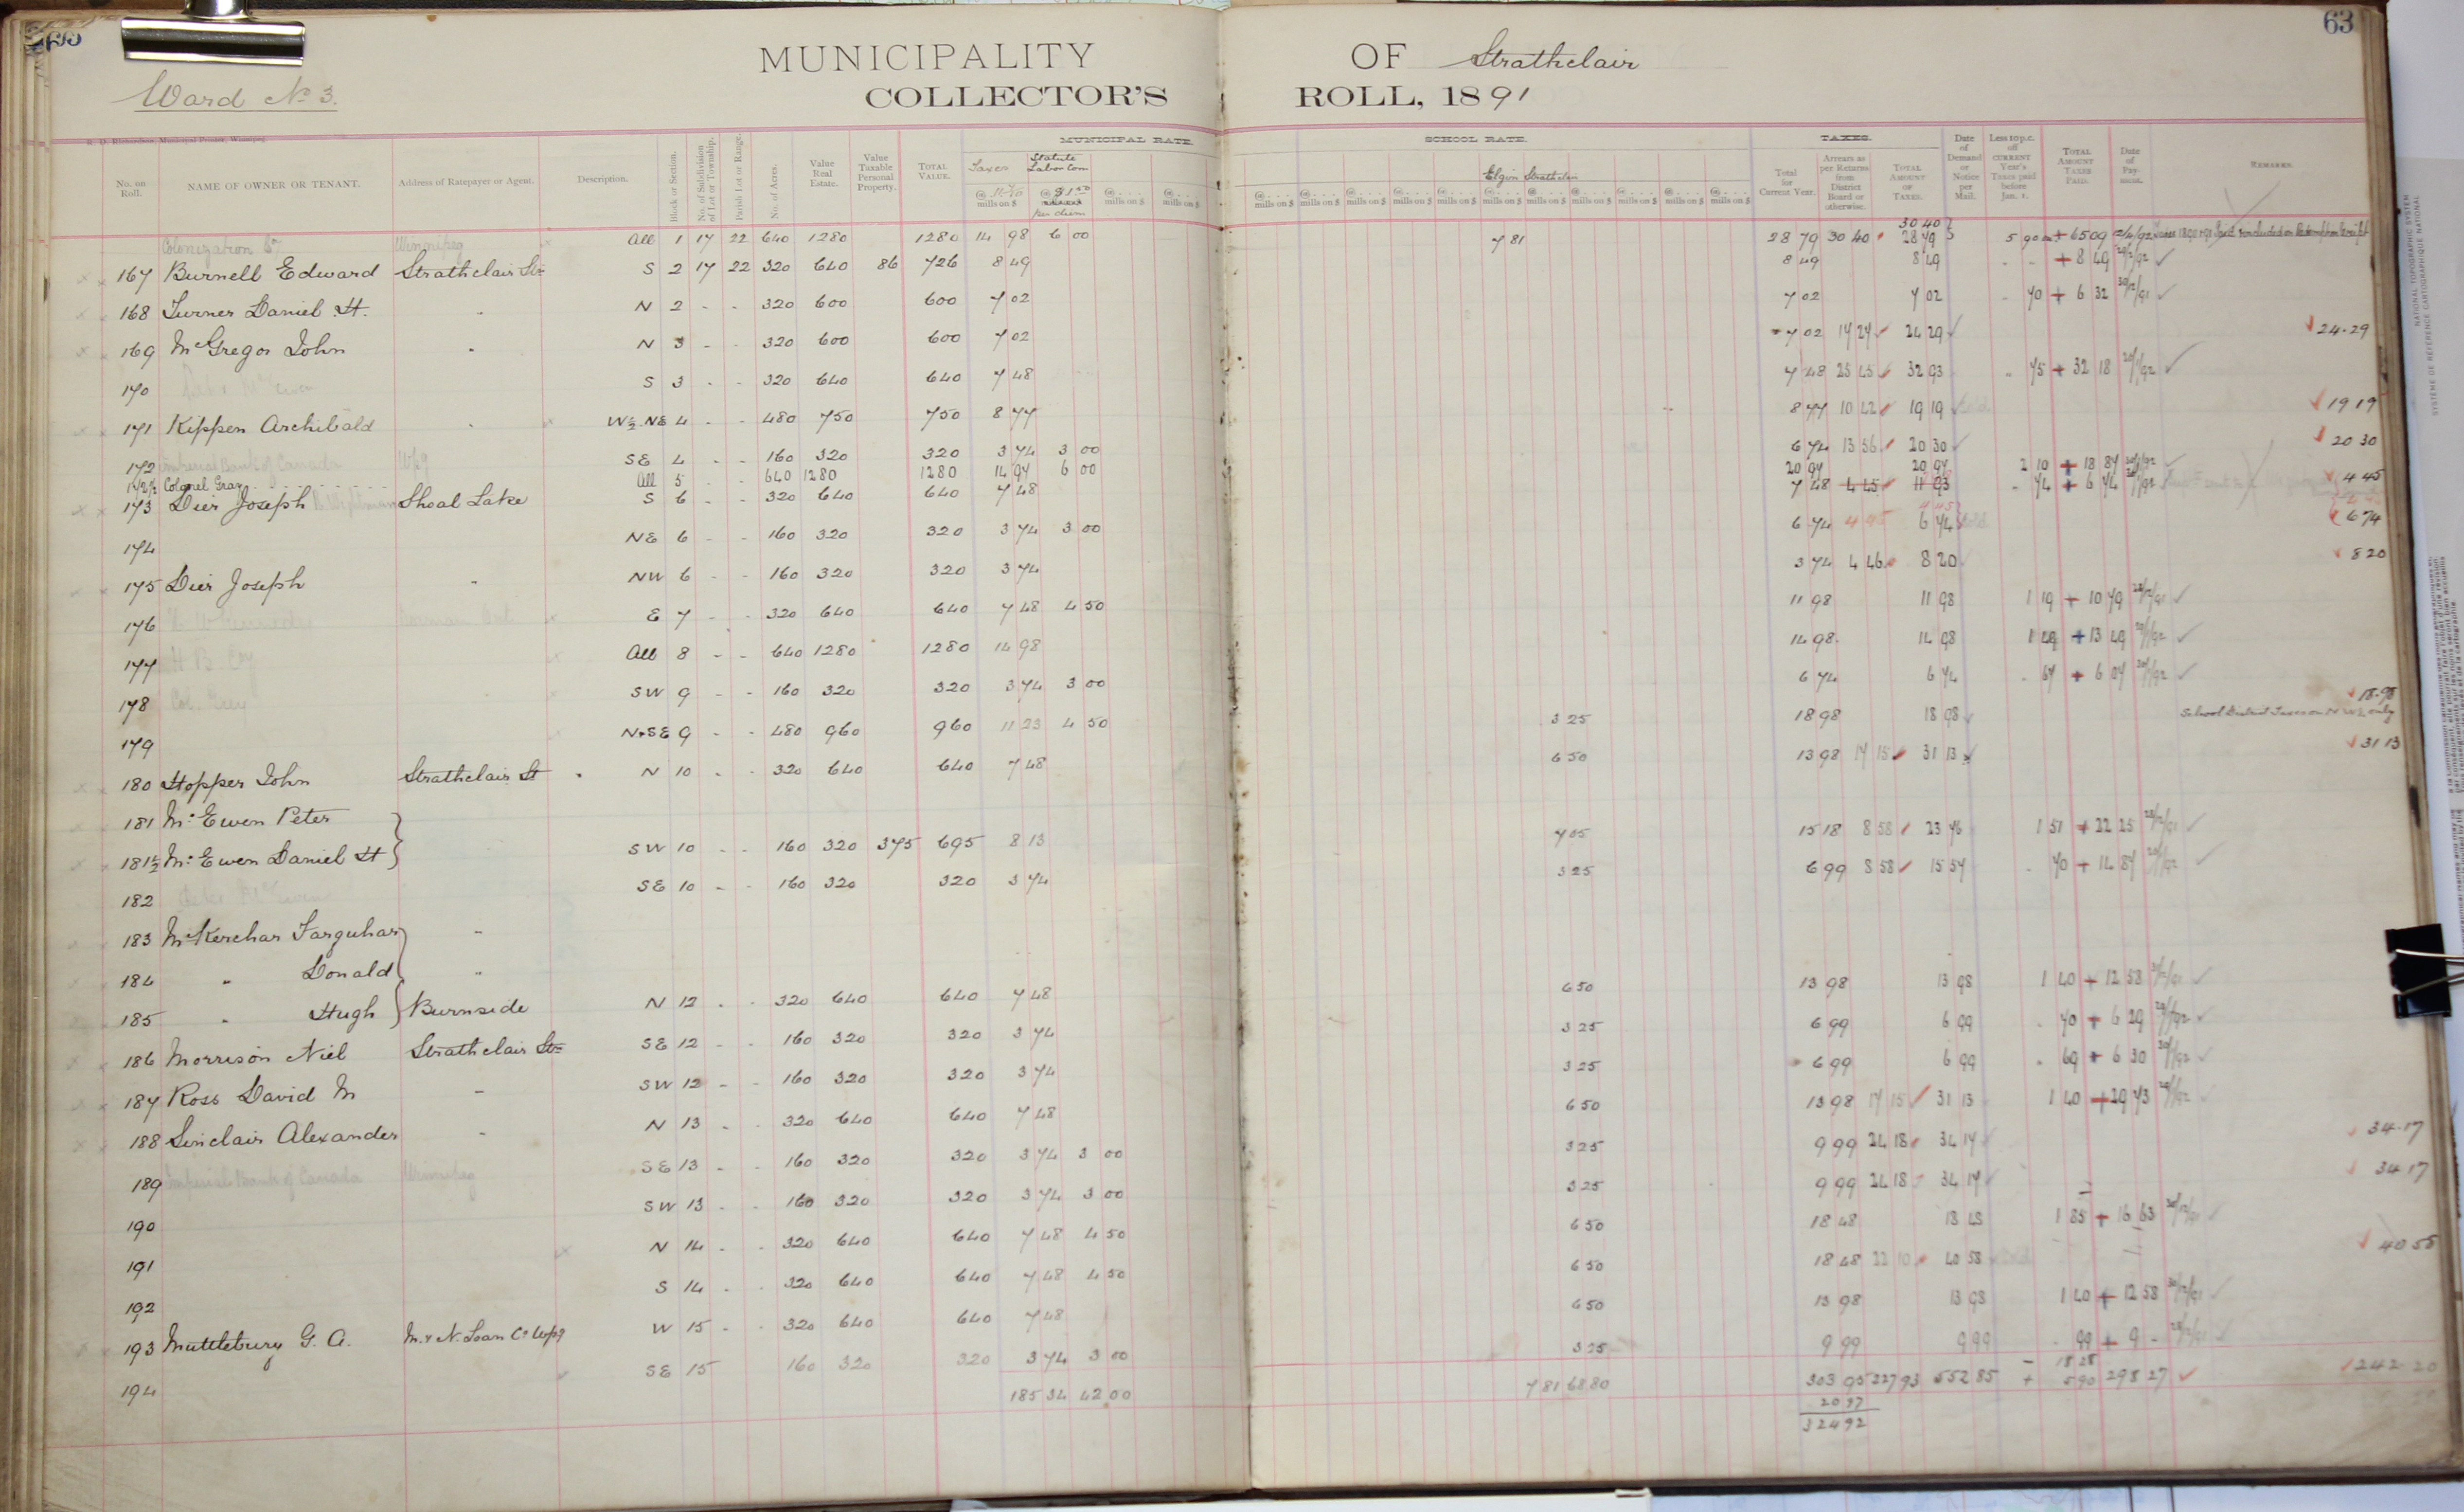 63
MUNICIPALITY OF Strathclair
Ward No 3.
COLLECTOR'S ROLL, 1891
R. D. Richardson, Municipal Printer, Winnipeg.
MUNICIPAL RATE. SCHOOL RATE. TAXES.
No. on Roll. NAME OF OWNER OR TENANT. Address of Ratepayer or Agent. Description. Block or Section. No. of Subdivision of Lot or Township. Parish Lot or Range. No. of Acres. Value Real Estate. Value Taxable Personal Property. TOTAL VALUE. Taxes mills on $ Statute Labor Com @ $1.50 per diem mills on $ mills on $ Elgin Strathclair mills on $ Total for Current Year. Arrears as per Returns from District Board or otherwise. TOTAL AMOUNT OF TAXES. Date of Demand or Notice per Mail. Less 10 p.c. off CURRENT Year's Taxes paid before Jan. 1. TOTAL AMOUNT TAXES PAID. Date of Payment. REMARKS.
Colonization Co Winnipeg All 1 17 22 640 1280 1280 14 98 6 00 7 81 28 79 30 40 30 40 28 79 5 90 + 65 09
167 Burnell Edward Strathclair Stn S 2 17 22 320 640 86 726 8 49 8 49 8 49 + 8 49
168 Turner Daniel H. " N 2 - - 320 600 600 7 02 7 02 7 02 70 + 6 32 30/12/91
169 McGregor John " N 3 - - 320 600 600 7 02 7 02 17 27 24 29 24.29
170 S 3 - - 320 640 640 7 48 7 48 25 45 32 93 75 + 32 18
171 Kippen Archibald W½.NE 4 - - 480 750 750 8 77 8 77 10 42 19 19 19 19
172 Imperial Bank of Canada Wpg SE 4 - - 160 320 320 3 74 3 00 6 74 13 56 20 30 20 30
172½ Colonel Gray All 5 - - 640 1280 1280 14 97 6 00 20 97 20 97 2 10 + 18 87
173 Dier Joseph Shoal Lake S 6 - - 320 640 640 7 48 7 48 4 45 11 93 74 + 6 74 4 45
174 NE 6 - - 160 320 320 3 74 3 00 6 74 4 45 6 74 6 74
175 Dier Joseph " NW 6 - - 160 320 320 3 74 3 74 4 46 8 20 8 20
176 E 7 - - 320 640 640 7 48 4 50 11 98 11 98 1 19 + 10 79
177 H B Coy All 8 - - 640 1280 1280 14 98 14 98 14 98 1 49 + 13 49
178 Col. Grey SW 9 - - 160 320 320 3 74 3 00 6 74 6 74 67 + 6 07
179 N+SE 9 - - 480 960 960 11 23 4 50 3 25 18 98 18 98 18.98 School District Taxes on NW¼ only
180 Hopper John Strathclair St N 10 - - 320 640 640 7 48 6 50 13 98 17 15 31 13 31 13
181 McEwen Peter
181½ McEwen Daniel H SW 10 - - 160 320 375 695 8 13 7 05 15 18 8 58 23 76 1 51 + 22 25
182 SE 10 - - 160 320 320 3 74 3 25 6 99 8 58 15 57 70 + 14 87
183 McKerchar Farquhar "
184 " Donald "
185 " Hugh Burnside N 12 - - 320 640 640 7 48 6 50 13 98 13 98 1 40 + 12 58
186 Morrison Niel Strathclair Stn SE 12 - - 160 320 320 3 74 3 25 6 99 6 99 70 + 6 29
187 Ross David M " SW 12 - - 160 320 320 3 74 3 25 6 99 6 99 69 + 6 30
188 Sinclair Alexander " N 13 - - 320 640 640 7 48 6 50 13 98 17 15 31 13 1 40 + 29 73
189 Imperial Bank of Canada Winnipeg SE 13 - - 160 320 320 3 74 3 00 3 25 9 99 24 18 34 17 34.17
190 SW 13 - - 160 320 320 3 74 3 00 3 25 9 99 24 18 34 17 34 17
191 N 14 - - 320 640 640 7 48 4 50 6 50 18 48 18 48 1 85 + 16 63
192 S 14 - - 320 640 640 7 48 4 50 6 50 18 48 22 10 40 58 40 58
193 Muttlebury G. A. M. & N. Loan Co Wpg W 15 - - 320 640 640 7 48 6 50 13 98 13 98 1 40 + 12 58
194 SE 15 160 320 320 3 74 3 00 3 25 9 99 9 99 99 + 9 -
185 34 42 00 7 81 68 80 303 95 227 93 552 85 18 28 5 90 298 27 242.20
20 97
324 92